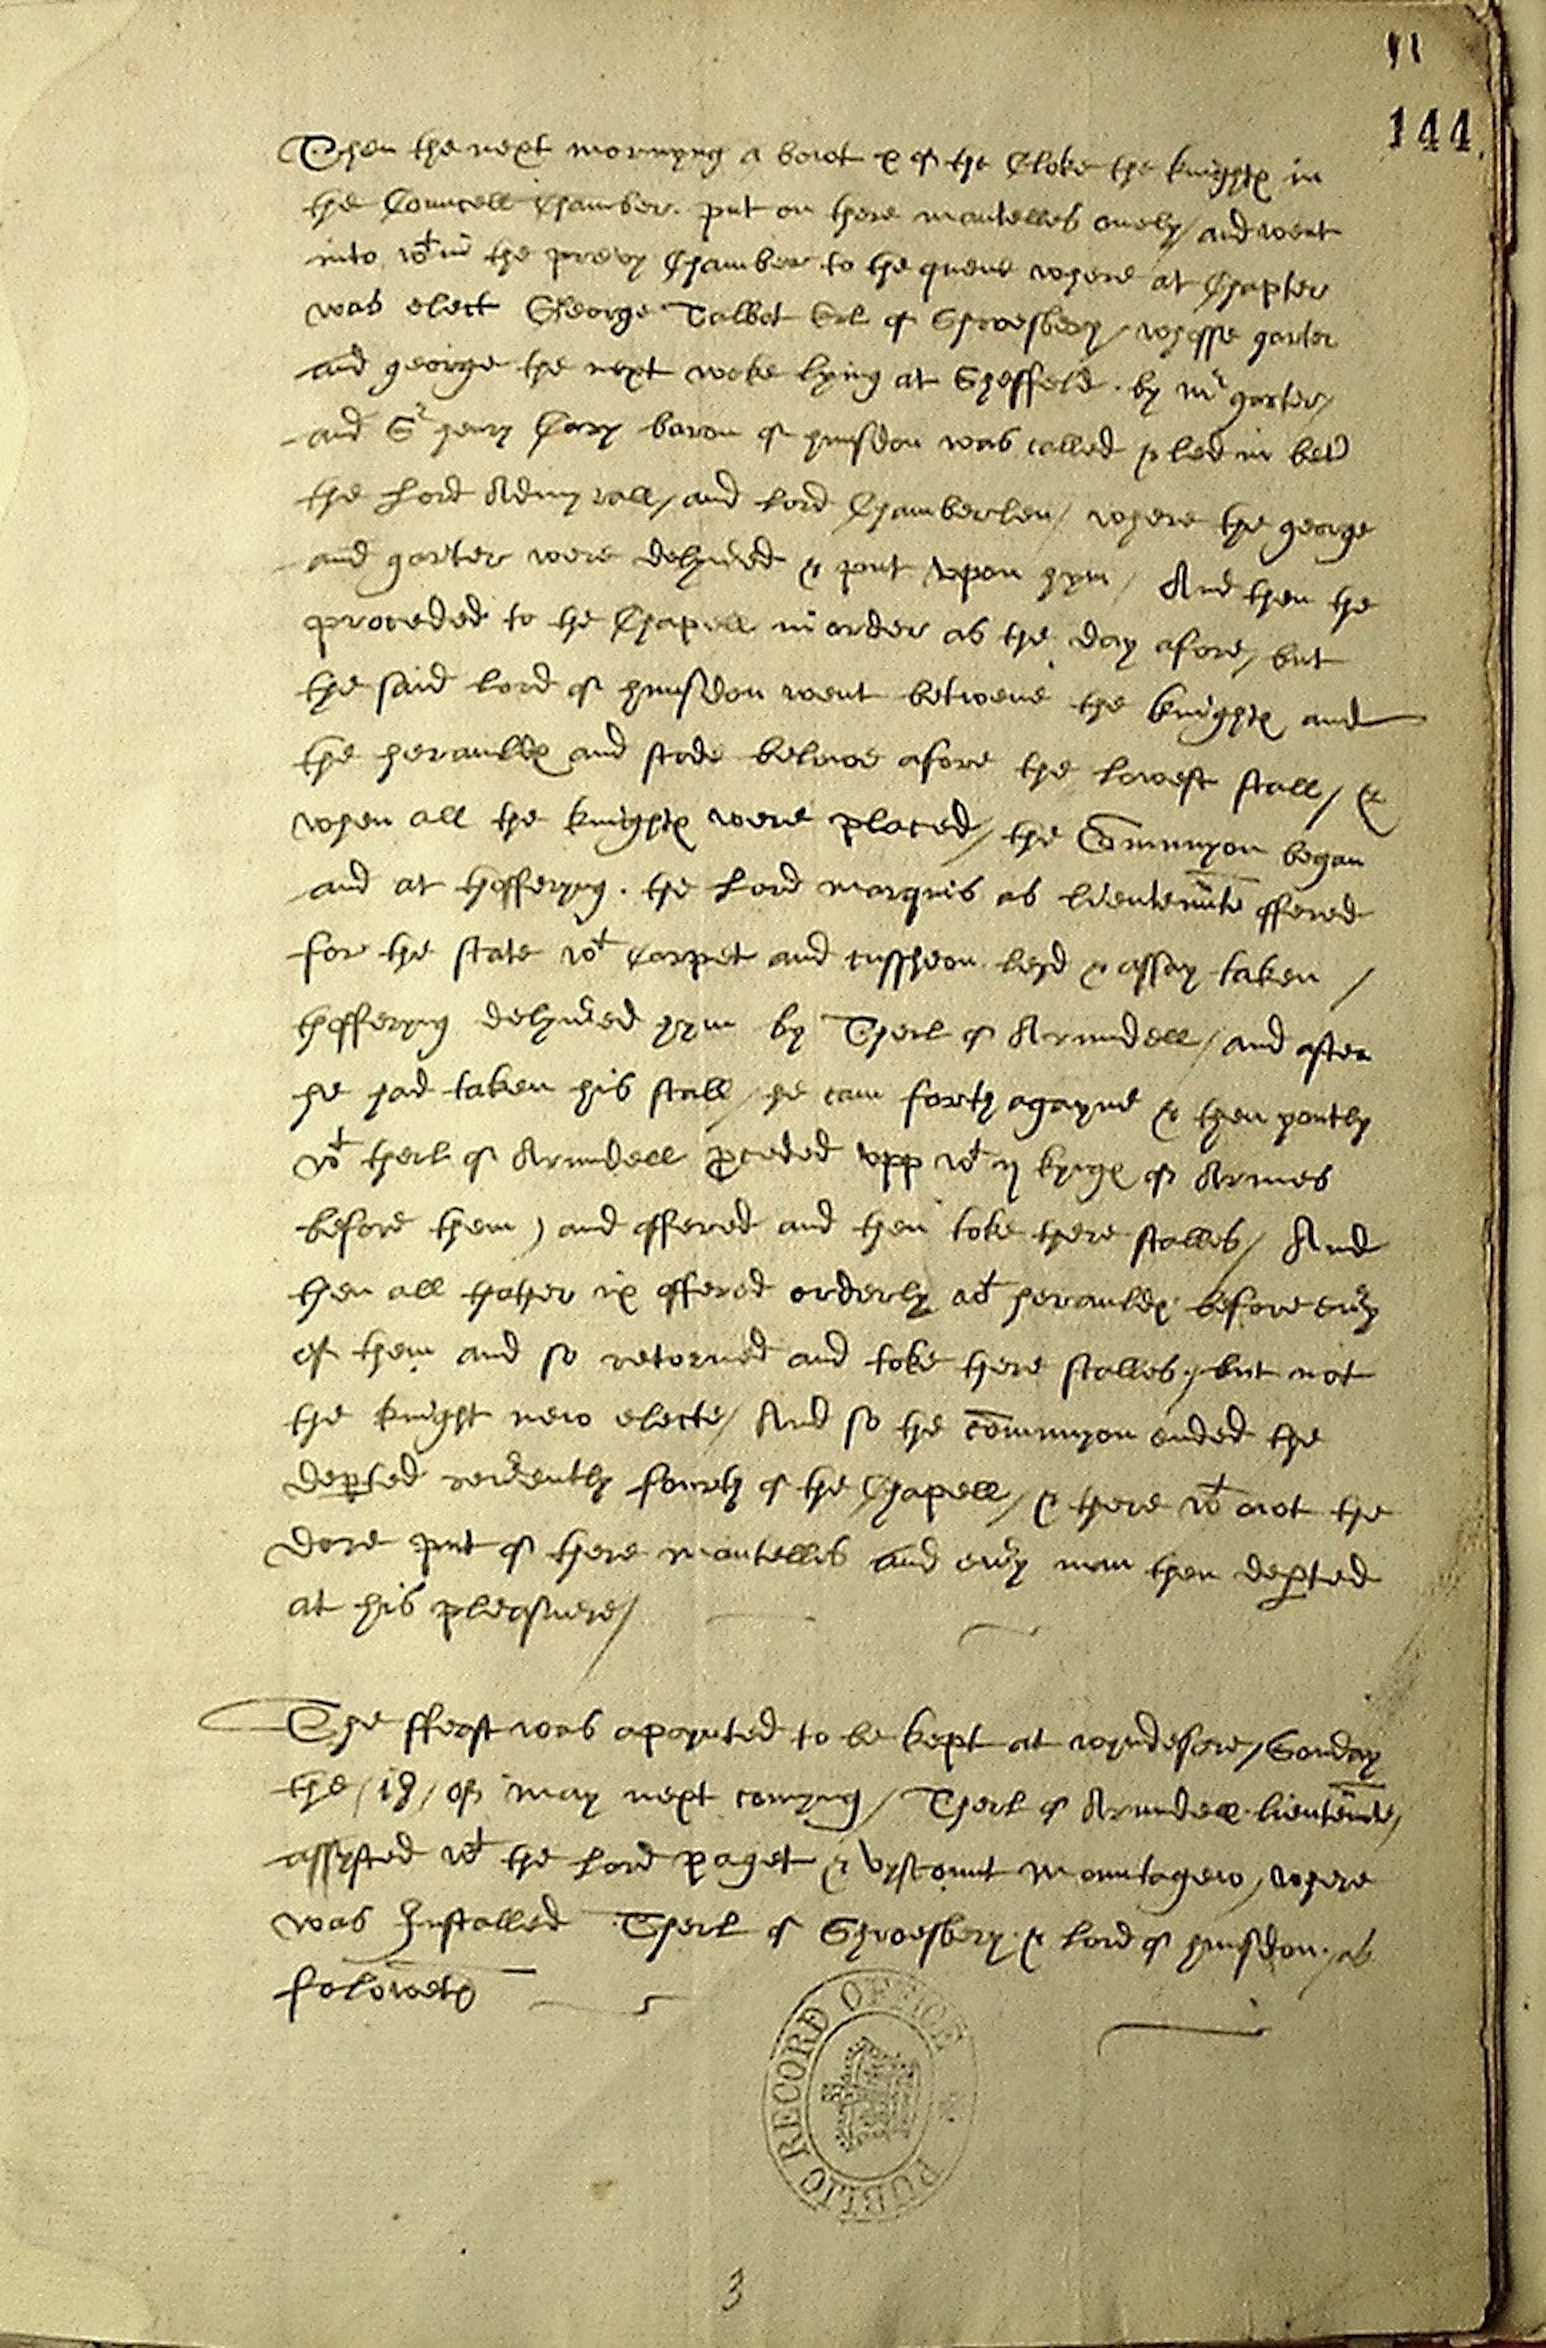 11
144
Then the next mornyng a bowt x of the Cloke the knightes in
the Councell Chamber put on there mantelles onely / and went
into wt in the prevy Chamber to the quene where at Chapter
was elect George Talbet Erl of Shroesbery / whosse garter
and george the next weke lying at Sheffeld . by mr garter /
and Sr henry Cary baron of hunsdon was called & led in betw
the Lord Admyrall / and Lord Chamberlen / where the george
and garter were delyuered & put vpon hym / And then the
proceded to the Chapell in order as the day afore / but
the said lord of hunsdon went betwene the knightes and
the herauldes and stode belowe afore the lowest stall / &
when all the knightes were placed / the Communyon began
and at thofferyng . the Lord marques as lieutennte offered
for the state wt Carpet and cussheon leyd & assay taken /
thofferyng delyuered hym by Therl of Arundell / and after
he had taken his stall / he cam forth agayne & then yontly
wt therl of Arundell proceded vpp wt ij kynges of Armes
before them ) and offered and then toke there stalles / And
then all thother ix offered orderly wt herauldes before euery
of them and so retorned and toke there stalles , but not
the knight new electe / And so the communyon ended the
departed reverently fourth of the Chapell / & there wt owt the
dore put of there mantelles and euery man then departed
at his pleasuere /
The ffeast was apoynted to be kept at wyndesore / Sonday
the / 18 / of may next comyng / Therl of Arundell lieutennte /
assysted wt the Lord paget & vyscount Mountagew / where
was Installed Therl of Shroesbery & Lord of hunsdon . as
foloweth
PUBLIC RECORD OFFICE
3